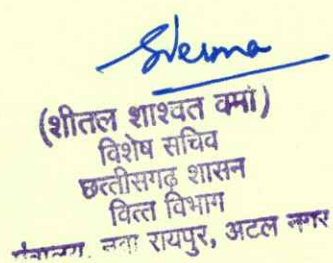 Sverma
(शीतल शाश्वत वर्मा)
विशेष सचिव
छत्तीसगढ़ शासन
वित्त विभाग
नवा रायपुर, अटल नगर